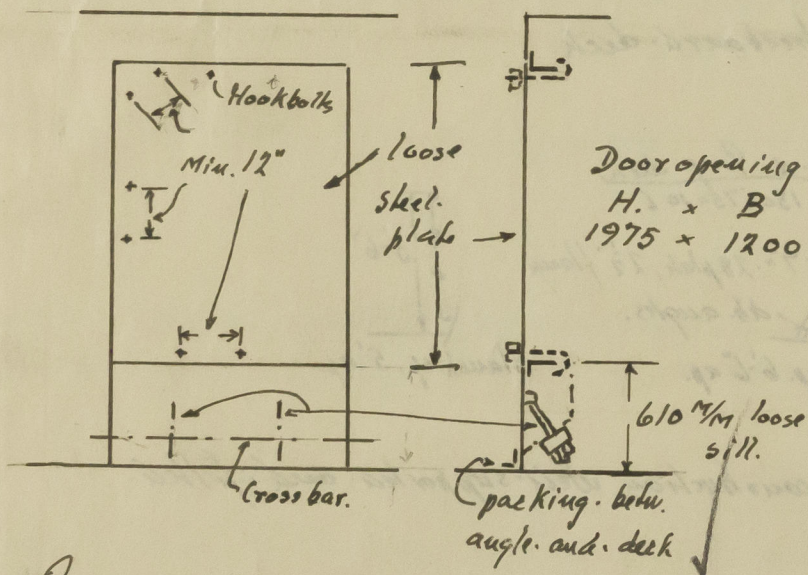 Hookbolts
Min. 12"
loose
steel.
plate
Door opening
H. x B
1975 x 1200
610 M/M loose
sill.
Crossbar.
packing. betw.
angle. and. deck